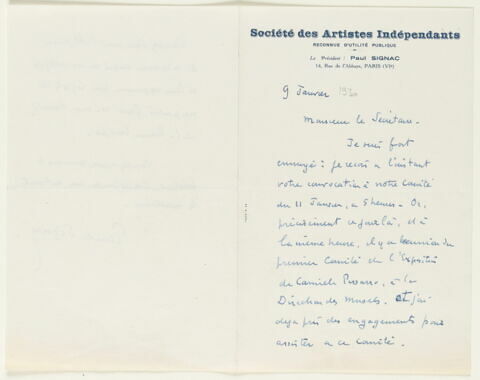 Société des Artistes Indépendants
RECONNUE D'UTILITÉ PUBLIQUE
Le Président : Paul SIGNAC
14, Rue de l'Abbaye, PARIS (VIe)
9 Janvier 1930
Monsieur le Secrétaire -
Je suis fort
ennuyé : je reçois à l'instant
votre convocation à notre Comité
du 11 Janvier, à 5 heures - Or,
précisément ce jour là, et à
la même heure, il y a réunion du
premier Comité de l'Exposition
de Camille Pissarro, à la
Direction des Musées. Et j'ai
déja pris des engagements pour
assister à ce Comité.